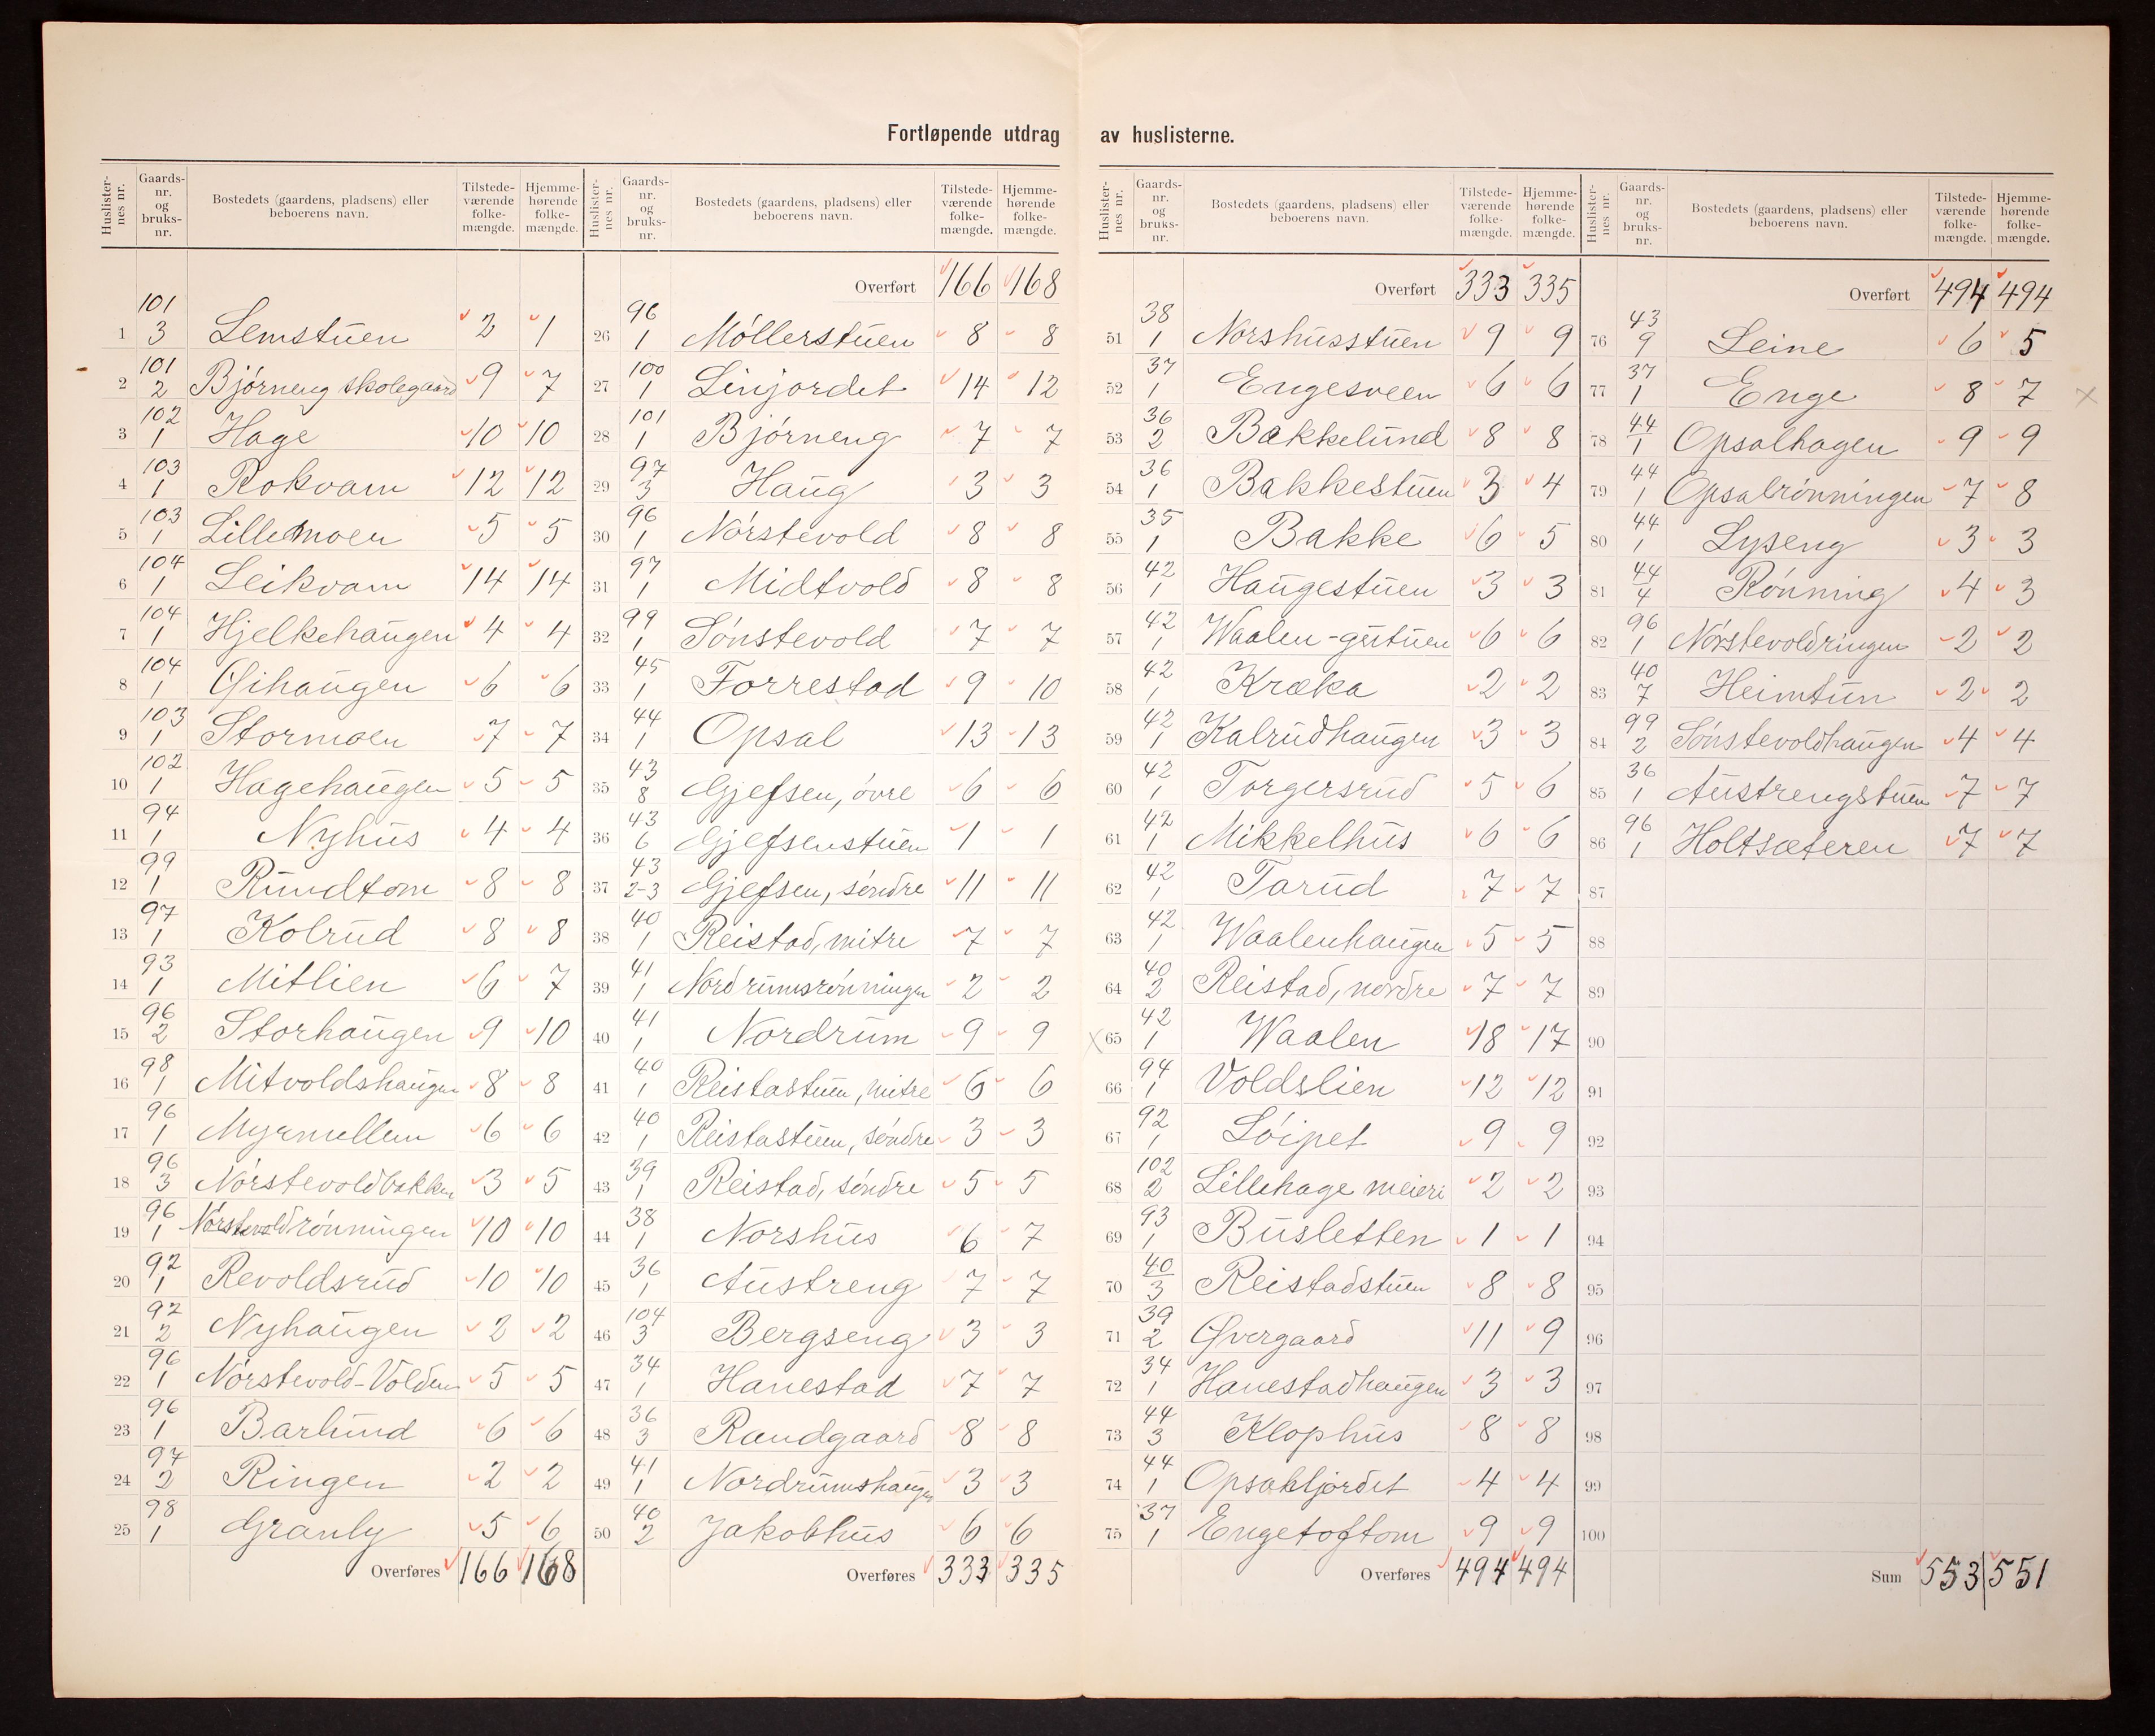 Fortløpende utdrag av huslisterne.
Huslister-nes nr. Gaards-nr. og bruks-nr. Bostedets (gaardens, pladsens) eller beboerens navn. Tilstede-værende folke-mængde. Hjemme-hørende folke-mængde.
1 101/3 Lemstuen 2 1
2 101/2 Bjørneng skolegaard 9 7
3 102/1 Hage 10 10
4 103/1 Rokvam 12 12
5 103/1 Lillemoen 5 5
6 104/1 Leikvam 14 14
7 104/1 Hjelkehaugen 4 4
8 104/1 Gihaugen 6 6
9 103/1 Stormoen 7 7
10 102/1 Hagehaugen 5 5
11 94/1 Nyhus 4 4
12 99/1 Rundtom 8 8
13 97/1 Kolrud 8 8
14 93/1 Mitlien 6 7
15 96/2 Storhaugen 9 10
16 98/1 Mitvoldshaugen 8 8
17 96/1 Myrmellem 6 6
18 96/3 Nórstevoldbakken 3 5
19 96/1 Nórstevoldrónningen 10 10
20 92/1 Revoldsrud 10 10
21 92/2 Nyhaugen 2 2
22 96/1 Nórstevold-Volden 5 5
23 96/1 Barlund 6 6
24 97/2 Ringen 2 2
25 98/1 Granly 5 6
Overføres 166 168
Huslister-nes nr. Gaards-nr. og bruks-nr. Bostedets (gaardens, pladsens) eller beboerens navn. Tilstede-værende folke-mængde. Hjemme-hørende folke-mængde.
Overført 166 168
26 96/1 Móllerstuen 8 8
27 100/1 Linjordet 14 12
28 101/1 Bjórneng 7 7
29 97/3 Haug 3 3
30 96/1 Nórstevold 8 8
31 97/1 Midtvold 8 8
32 99/1 Sónstevold 7 7
33 45/1 Forrestad 9 10
34 44/1 Opsal 13 13
35 43/8 Gjefsen, óvre 6 6
36 43/6 Gjefsenstuen 1 1
37 43/2-3 Gjefsen, sóndre 11 11
38 40/1 Reistad, mitre 7 7
39 41/1 Nordrumsrónningen 2 2
40 41/1 Nordrum 9 9
41 40/1 Reistastuen, mitre 6 6
42 40/1 Reistastuen, sóndre 3 3
43 39/1 Reistad, sóndre 5 5
44 38/1 Norshus 6 7
45 36/1 Austreng 7 7
46 104/3 Bergseng 3 3
47 34/1 Hanestad 7 7
48 36/3 Randgaard 8 8
49 41/1 Nordrumshaugen 3 3
50 40/2 Jakobhus 6 6
Overføres 333 335
Huslister-nes nr. Gaards-nr. og bruks-nr. Bostedets (gaardens, pladsens) eller beboerens navn. Tilstede-værende folke-mængde. Hjemme-hørende folke-mængde.
Overført 333 335
51 38/1 Norshusstuen 9 9
52 37/1 Engesveen 6 6
53 36/2 Bakkelund 8 8
54 36/1 Bakkestuen 3 4
55 35/1 Bakke 6 5
56 42/1 Haugestuen 3 3
57 42/1 Waalen-gutuen 6 6
58 42/1 Kræka 2 2
59 42/1 Kalrudhaugen 3 3
60 42/1 Torgersrud 5 6
61 42/1 Mikkelhus 6 6
62 42/1 Tarud 7 7
63 42/1 Waalenhaugen 5 5
64 40/2 Reistad, nordre 7 7
x 65 42/1 Waalen 18 17
66 94/1 Voldslien 12 12
67 92/1 Lóipet 9 9
68 102/2 Lillehage meieri 2 2
69 93/1 Busletten 1 1
70 40/3 Reistadstuen 8 8
71 39/2 Øvergaard 11 9
72 34/1 Hanestadhaugen 3 3
73 44/3 Klophus 8 8
74 44/1 Opsahljordet 4 4
75 37/1 Engetoftom 9 9
Overføres 494 494
Huslister-nes nr. Gaards-nr. og bruks-nr. Bostedets (gaardens, pladsens) eller beboerens navn. Tilstede-værende folke-mængde. Hjemme-hørende folke-mængde.
Overført 494 494
76 43/9 Leine 6 5
77 37/1 Enge 8 7 x
78 44/1 Opsalhagen 9 9
79 44/1 Opsalrónningen 7 8
80 44/1 Lyseng 3 3
81 44/4 Rónning 4 3
82 96/1 Nórstevoldringen 2 2
83 40/7 Heimtun 2 2
84 99/2 Sónstevoldhaugen 4 4
85 36/1 Austrengstuen 7 7
86 96/1 Holtsæteren 7 7
87
88
89
90
91
92
93
94
95
96
97
98
99
100
Sum 553 551